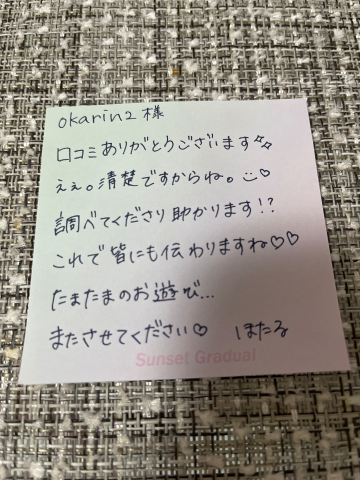 okarin2 様
口コミありがとうございます✨
ええ。清楚ですからね。☺♡
調べてくださり助かります!?
これで皆にも伝わりますね♡♡
たまたまのお遊び...
またさせてください♡ ほたる
Sunset Gradual